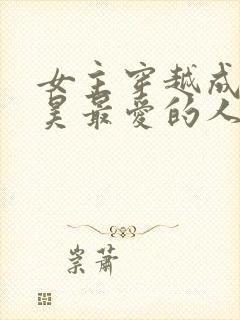 女主穿越成
昊最爱的人
崇萧